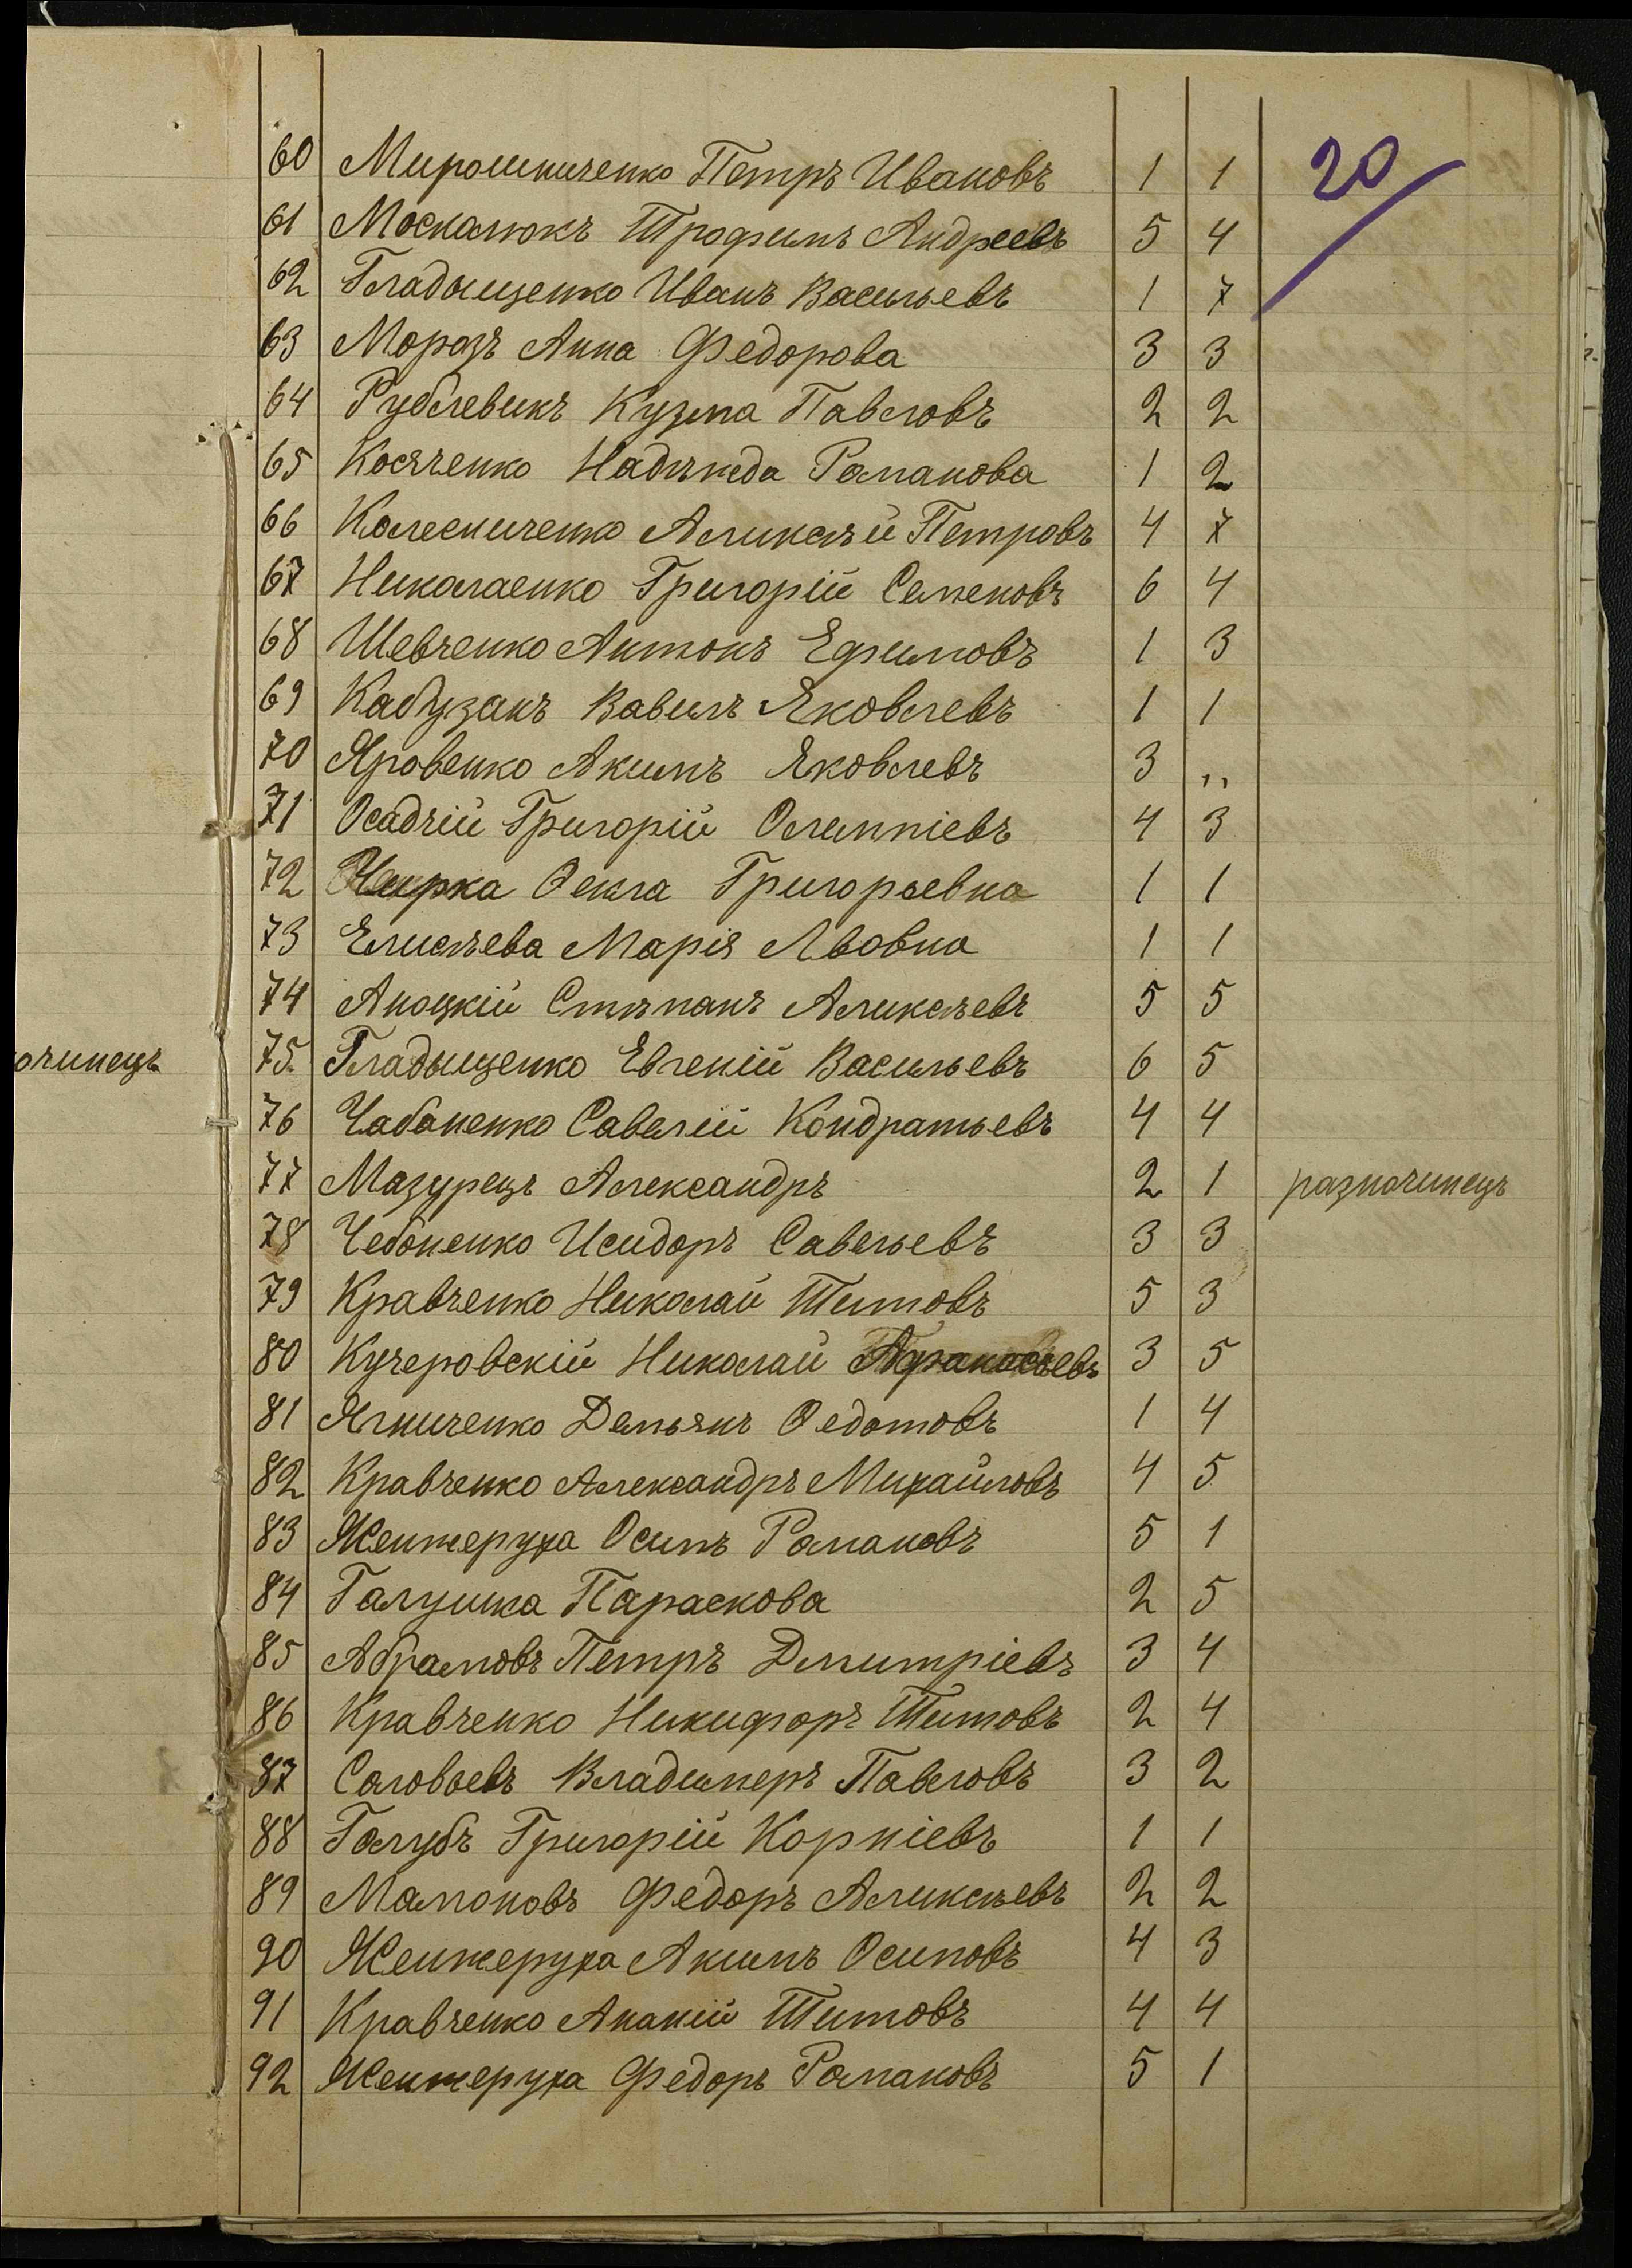 20
60 Мирошниченко Петръ Ивановъ 1 1
61 Москалюкъ Трофимъ Андреевъ 5 4
62 Гладыщенко Иванъ Васильевъ 1 7
63 Морозъ Анна Федорова 3 3
64 Рублевикъ Кузма Павловъ 2 2
65 Косяченко Надѣжда Романова 1 2
66 Колесниченко Аликсѣй Петровъ 4 7
67 Николаенко Григорій Семеновъ 6 4
68 Шевченко Антонъ Ефимовъ 1 3
69 Кабузанъ Вавилъ Яковлевъ 1 1
70 Яровенко Акимъ Яковлевъ 3 „
71 Осадчій Григорій Олимпіевъ 4 3
72 Чирка Олига Григорьевна 1 1
73 Елисѣева Марія Львовна 1 1
74 Аноцкій Стѣпанъ Аликсѣевъ 5 5
очинецъ
75. Гладыщенко Евгеній Васильевъ 6 5
76 Чабаненко Савелій Кондратьевъ 4 4
77 Мазурецъ Александръ 2 1 разночинецъ
78 Чебоненко Исидоръ Савельевъ 3 3
79 Кравченко Николай Титовъ 5 3
80 Кучеровскій Николай Афанасьевъ 3 5
81 Ягниченко Демьянъ Федотовъ 1 4
82 Кравченко Александръ Михайловъ 4 5
83 Женжеруха Осипъ Романовъ 5 1
84 Галушка Параскова 2 5
85 Абрамовъ Петръ Дмитріевъ 3 4
86 Кравченко Никифоръ Титовъ 2 4
87 Соловьевъ Владимеръ Павловъ 3 2
88 Голубъ Григорій Корніевъ 1 1
89 Мамоновъ Федоръ Аликсѣевъ 2 2
90 Женжеруха Акимъ Осиповъ 4 3
91 Кравченко Ананій Титовъ 4 4
92 Женжеруха Федоръ Романовъ 5 1